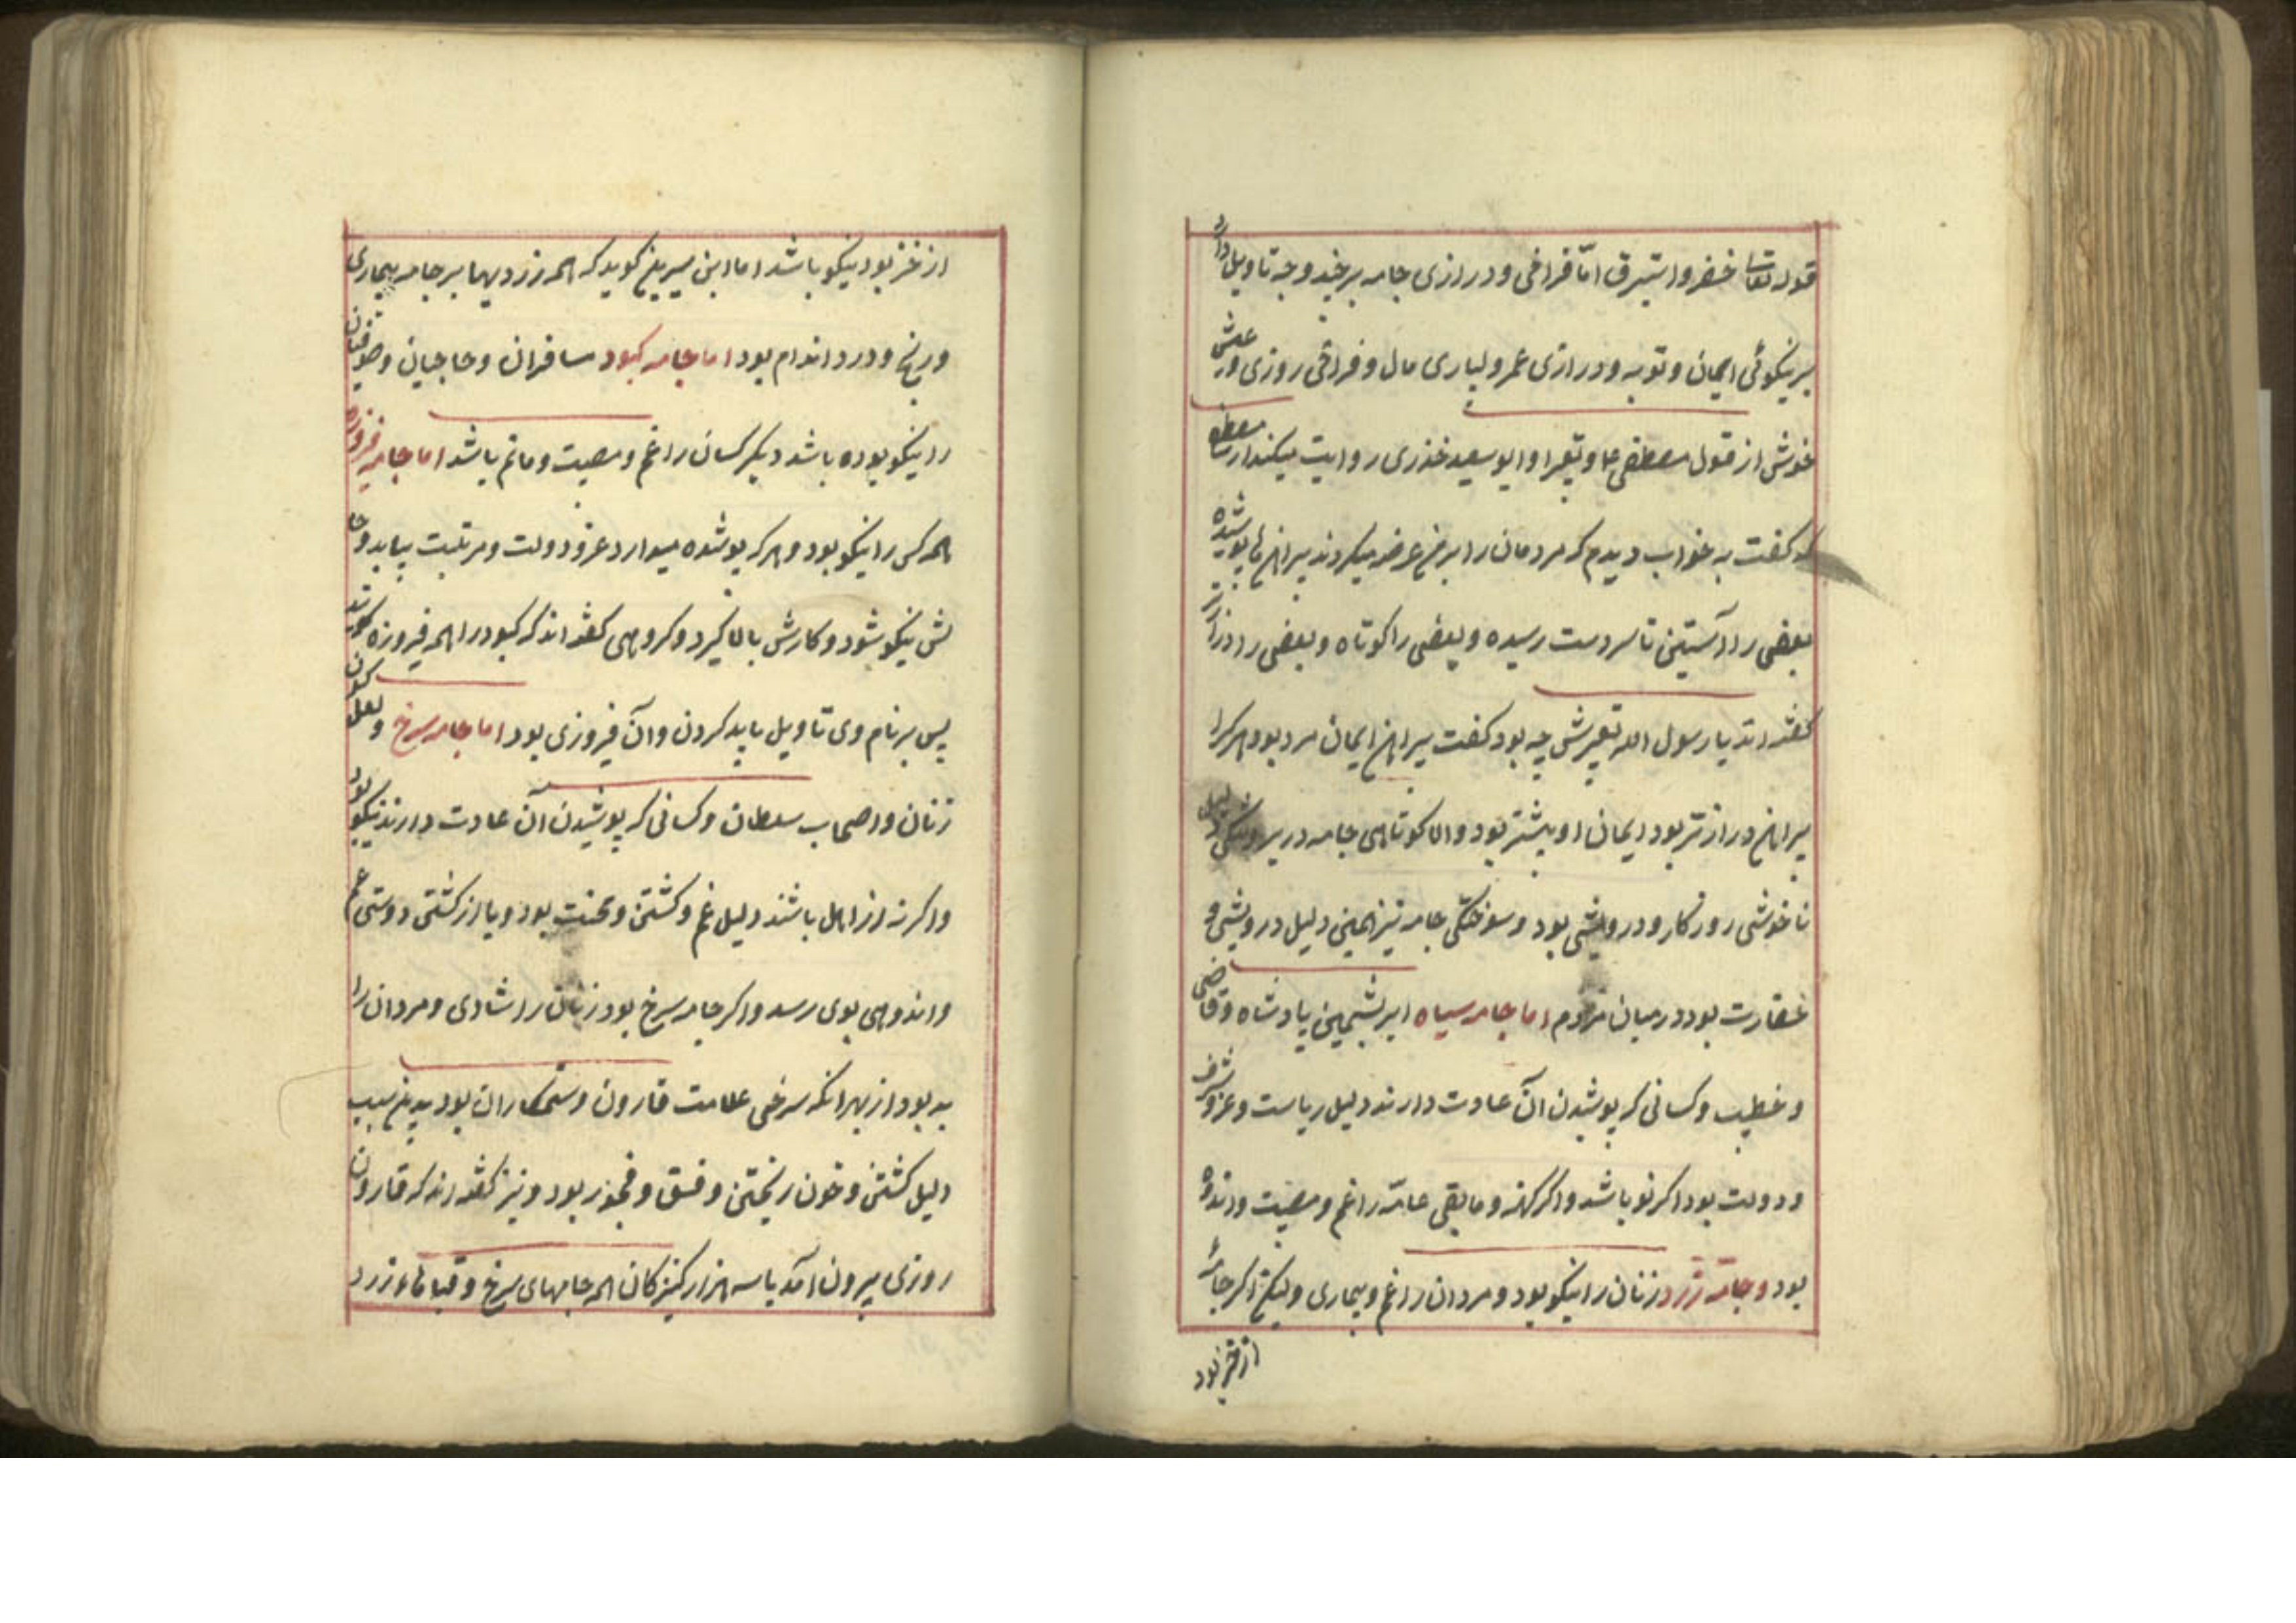 قوله تعالی خضر واستبرق امّا فراخی ودرازی جامه بر چند وجه تاویل دارد
بر نیکوئی ایمان وتوبه ودرازی عمر وبسیاری مال وفراخی روزی وعیش
خوش از قول مصطفی وابو سعید خذری روایت میکند از مصطفی
که گفت به خواب دیدم که مردمان را بر من عرضه میکردند پیراهن ها پوشیده
بعضی را آستین تا سر دست رسیده وبعضی را کوتاه وبعضی را درازتر
گفته اند یا رسول الله تعبیرش چه بود گفت پیراهن ایمان مرد بود هر کرا
پیراهن درازتر بود ایمان او بیشتر بود واما کوتاهی جامه دلیل
ناخوشی روزکار ودرویشی بود وسوختگی جامه نیز همین دلیل درویشی و
حقارت بود در میان مردم اما جامه سیاه ابریشمین پادشاه وقاضی
وخطیب وکسانی که پوشیدن آن عادت دارند دلیل ریاست وعز وشرف
ودولت بود اگر نو باشد واگر کهنه ومابقی عامّه را غم ومصیبت واندوه
بود وجامه زرد زنان را نیکو بود ومردان را غم وبیماری ولیکن اگر جامه
از خز بود
از خز بود نیکو باشد اما ابن سیرین گوید که همه زردیها بر جامه بیماری
ورنج ودرد اندام بود اما جامه کبود مسافران وحاجیان وصوفیان
را نیکو بوده باشد دیگر کسان را غم ومصیبت وماتم باشد اما جامه فیروزه
همه کس را نیکو بود وهر که پوشده میدارد عز ودولت ومرتبت بیابد وحا
لش نیکو شود وکارش بالا گیرد وگروهی گفته اند که کبود را همه فیروزه گویند
پس بر نام وی تاویل باید کردن وآن فیروزی بود اما جامه سرخ ولعل گون
زنان واصحاب سلطان وکسانی که پوشیدن آن عادت دارند نیکو بود
واگر نه از اهل باشند دلیل غم وکشتن ومحنت بود ویا از کشتی دوستی غم
واندوهی بوی رسد واگر جامه سرخ بود زنان را شادی ومردان را
بد بود از بهر انکه سرخی علامت قارون وستمکاران بود بدین سبب
دلیل کشتن وخون ریختن وفسق وفجور بود ونیز گفته اند که قارون
روزی بیرون آمد با سه هزار کنیزکان همه جامهای سرخ وقباهاء زرد